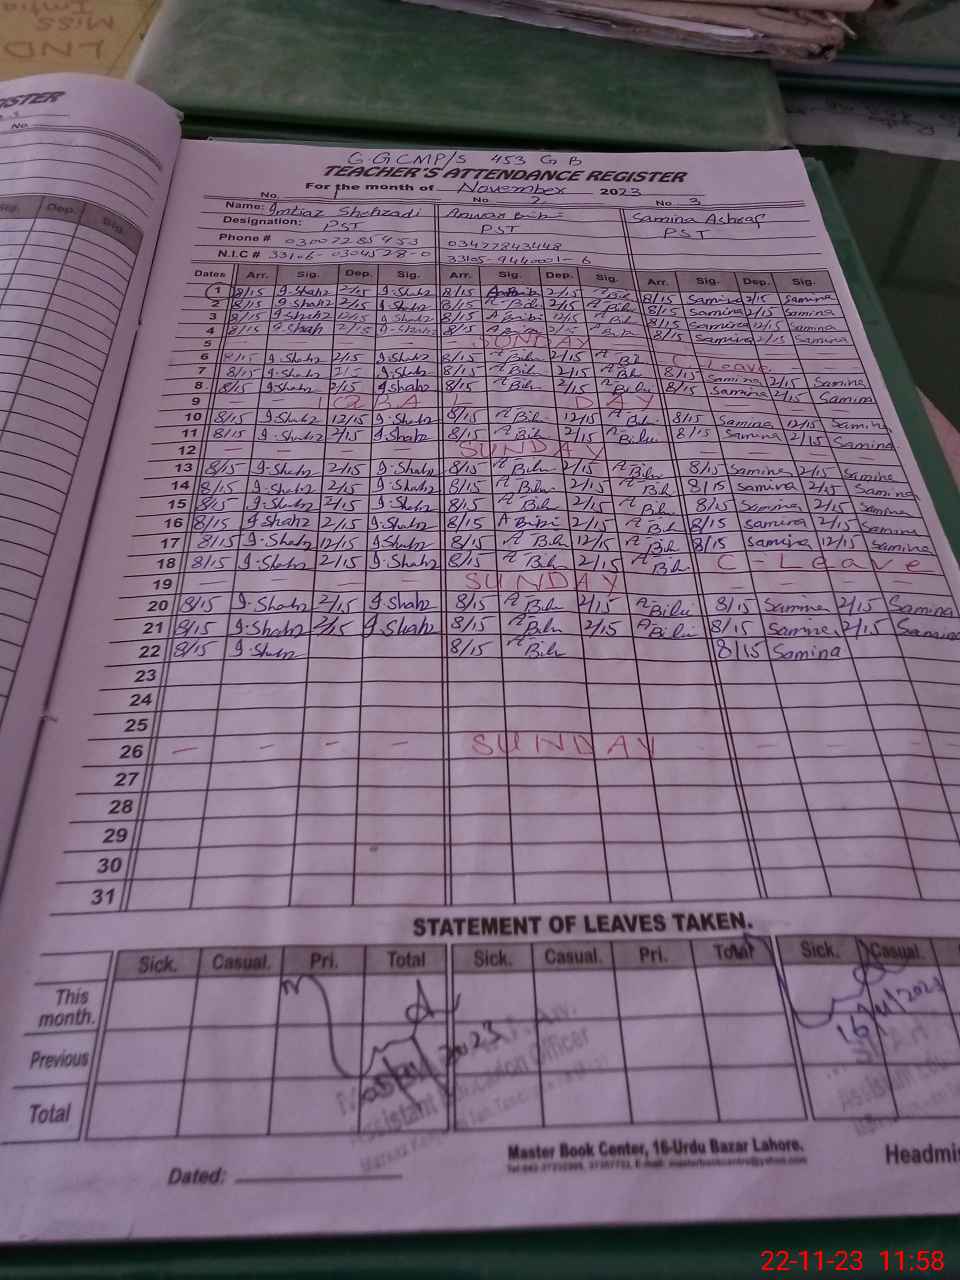 LND
Miss
ISTER
No
Sig. Dep. Sig.
G.G.CMP/S 453 G B
TEACHER'S ATTENDANCE REGISTER
For the month of November 2023
No 1 No. 2 No. 3
Name: Imtiaz Shehzadi Anwar Bibi Samina Ashraf
Designation: PST PST PST
Phone # 03007285453 03477843448
N.I.C # 33106-0304528-0 33105-9440001-6
Dates Arr. Sig. Dep. Sig. Arr. Sig. Dep. Sig. Arr. Sig. Dep. Sig.
1 8/15 I.Shahz 2/15 I.Shahz 8/15 A Bibi 2/15 A-Bibi 8/15 Samina 2/15 Samina
2 8/15 I.Shahz 2/15 I.Shahz 8/15 A-Bibi 2/15 A-Bibi 8/15 Samina 2/15 Samina
3 8/15 I.Shahz 12/15 I.Shahz 8/15 A Bibi 12/15 A-Bibi 8/15 Samina 12/15 Samina
4 8/15 I.Shah 2/15 I-Shahz 8/15 A Bibi 2/15 A-Bibi 8/15 Samina 2/15 Samina
5 - - - - SUNDAY - - - -
6 8/15 I.Shahz 2/15 I.Shahz 8/15 A-Bibi 2/15 A-Bibi C-Leave
7 8/15 I.Shahz 2/15 I.Shahz 8/15 A-Bibi 2/15 A-Bibi 8/15 Samina 2/15 Samina
8 8/15 I.Shahz 2/15 I.Shahz 8/15 A-Bibi 2/15 A-Bibi 8/15 Samina 2/15 Samina
9 - - IQBAL DAY - - - -
10 8/15 I.Shahz 12/15 I.Shahz 8/15 A-Bibi 12/15 A-Bibi 8/15 Samina 12/15 Samina
11 8/15 I.Shahz 2/15 I.Shahz 8/15 A-Bibi 2/15 A-Bibi 8/15 Samina 2/15 Samina
12 - - - - SUNDAY - - - -
13 8/15 I.Shahz 2/15 I.Shahz 8/15 A-Bibi 2/15 A-Bibi 8/15 Samina 2/15 Samina
14 8/15 I.Shahz 2/15 I.Shahz 8/15 A-Bibi 2/15 A-Bibi 8/15 Samina 2/15 Samina
15 8/15 I.Shahz 2/15 I.Shahz 8/15 A-Bibi 2/15 A-Bibi 8/15 Samina 2/15 Samina
16 8/15 I.Shahz 2/15 I.Shahz 8/15 A Bibi 2/15 A-Bibi 8/15 Samina 2/15 Samina
17 8/15 I.Shahz 12/15 I.Shahz 8/15 A-Bibi 12/15 A-Bibi 8/15 Samina 12/15 Samina
18 8/15 I.Shahz 2/15 I.Shahz 8/15 A-Bibi 2/15 A-Bibi C-Leave
19 - - - - SUNDAY - - - -
20 8/15 I.Shahz 2/15 I.Shahz 8/15 A-Bibi 2/15 A-Bibi 8/15 Samina 2/15 Samina
21 8/15 I.Shahz 2/15 I.Shahz 8/15 A-Bibi 2/15 A-Bibi 8/15 Samina 2/15 Samina
22 8/15 I.Shahz 8/15 A-Bibi 8/15 Samina
23
24
25
26 - - - - SUNDAY - - - -
27
28
29
30
31
STATEMENT OF LEAVES TAKEN.
Sick. Casual. Pri. Total Sick. Casual. Pri. Total Sick. Casual.
This
month.
Previous
Total
2023
Assistant Education Officer
16 Jul 2023
Assistant
Master Book Center, 16-Urdu Bazar Lahore.
Dated:
Headmis
22-11-23 11:58